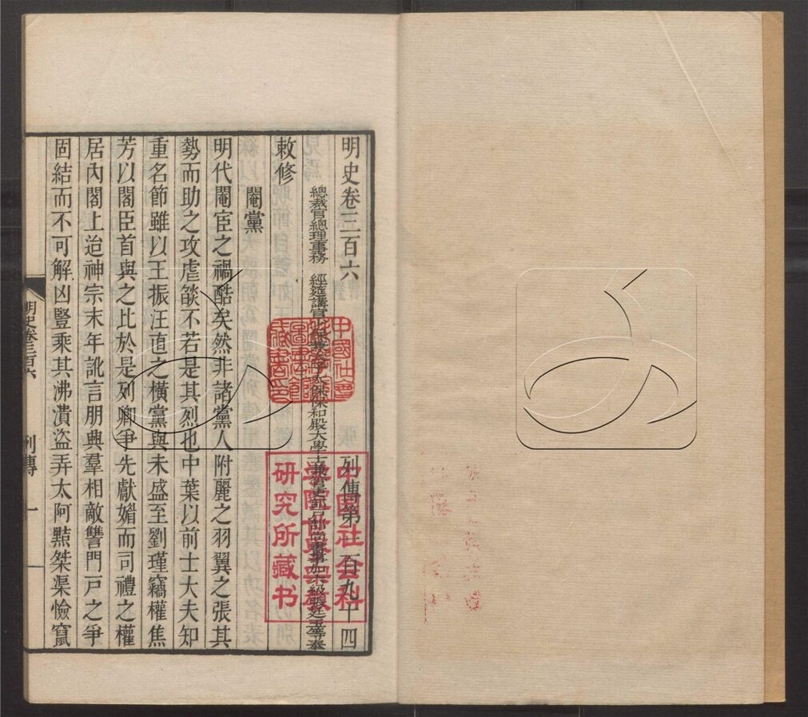 明史卷三百六 列傳第一百九十四
總裁官總理事務 經筵講官 保和殿大學士
敕修
閹黨
明代閹宦之禍酷矣然非諸黨人附麗之羽翼之張其
勢而助之攻虐燄不若是其烈也中葉以前士大夫知
重名節雖以王振汪直之橫黨與未盛至劉瑾竊權焦
芳以閣臣首與之比於是列卿爭先獻媚而司禮之權
居內閣上迨神宗末年訛言朋興羣相敵讐門戶之爭
固結而不可解凶豎乘其沸潰盜弄太阿黠桀渠憸竄
明史卷三百六 列傳 一
中國社會科學院世界宗教研究所藏书